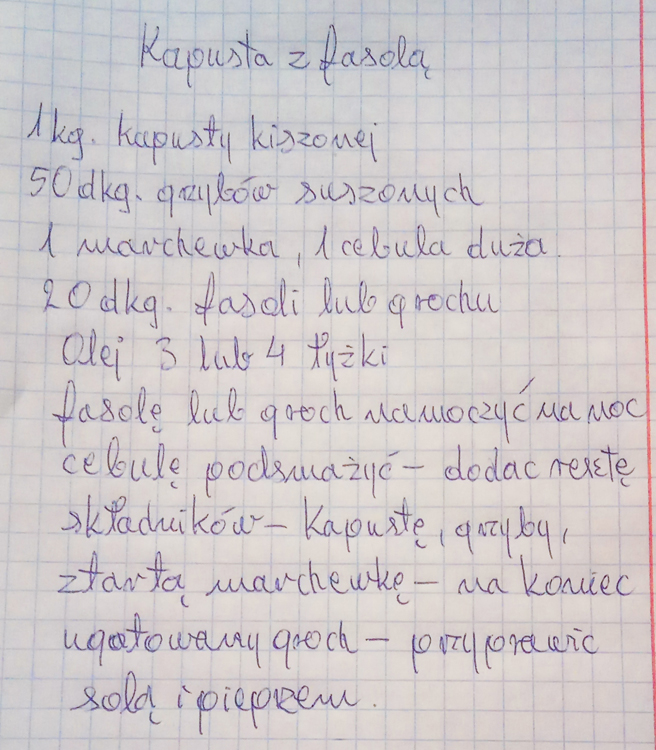 Kapusta z fasolą
1 kg. kapusty kiszonej
50 dkg. grzybów suszonych
1 marchewka, 1 cebula duża.
20 dkg. fasoli lub grochu
Olej 3 lub 4 łyżki
fasolę lub groch namoczyć na noc
cebulę podsmażyć – dodac resztę
składników – Kapustę, grzyby,
ztartą marchewkę – na koniec
ugotowany groch – przyprawic
solą i pieprzem.